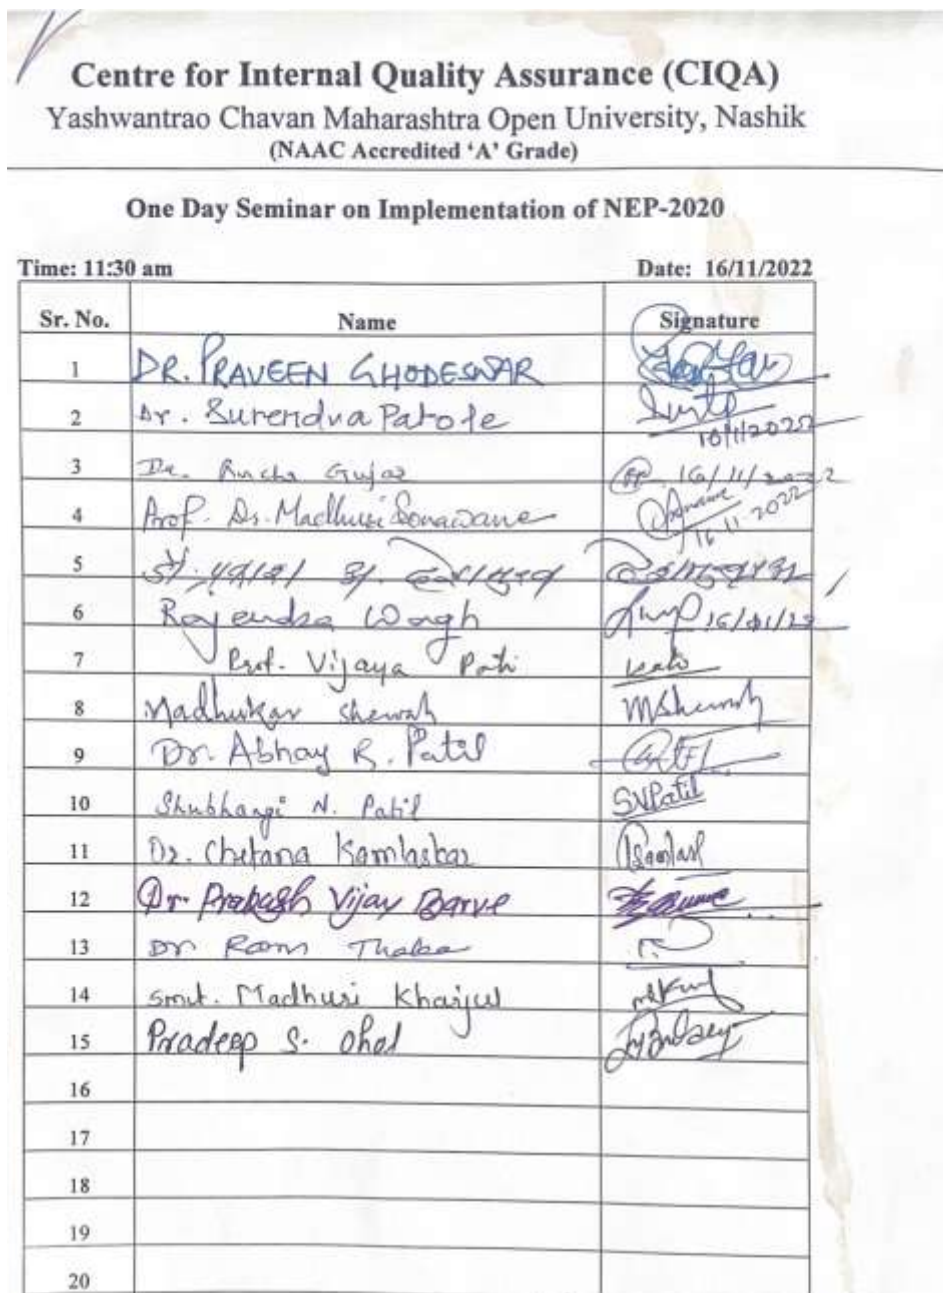 Centre for Internal Quality Assurance (CIQA)
Yashwantrao Chavan Maharashtra Open University, Nashik
(NAAC Accredited ‘A’ Grade)
One Day Seminar on Implementation of NEP-2020
Time: 11:30 am Date: 16/11/2022
Sr. No. Name Signature
1 DR. PRAVEEN GHODESWAR
2 Dr. Surendra Patole
3 Dr. Rucha Gujar 16/11/2022
4 Prof. Dr. Madhuri Sonawane 16.11.2022
5 डॉ.
6 Rajendra Wagh
7 Prof. Vijaya Patil
8 Madhukar Shewale MShewale
9 Dr. Abhay R. Patil
10 Shubhangi N. Patil SNPatil
11 Dr. Chetana Kamlaskar
12 Dr. Prakash Vijay Barve
13 Dr Ram Thakar
14 Smt. Madhuri Kharjul
15 Pradeep S. Ohol
16
17
18
19
20